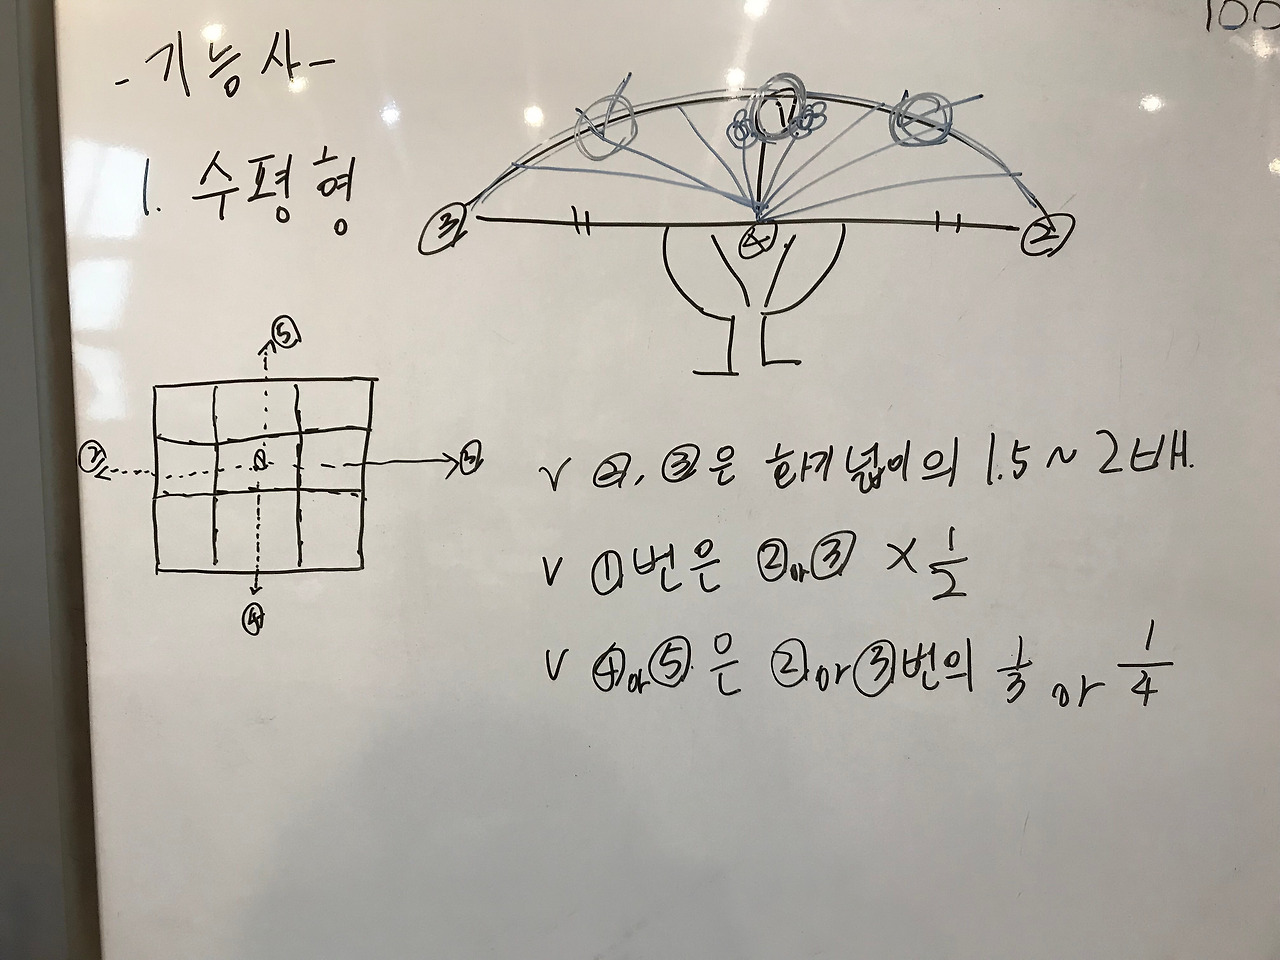 100
-기능사-
1. 수평형
①
③ ④ ②
⑤
① 
④
v ②, ③은 화기 넓이의 1.5 ~ 2배.
v ①번은 ② or ③ × 1/2
v ④ or ⑤은 ② or ③번의 1/3 or 1/4